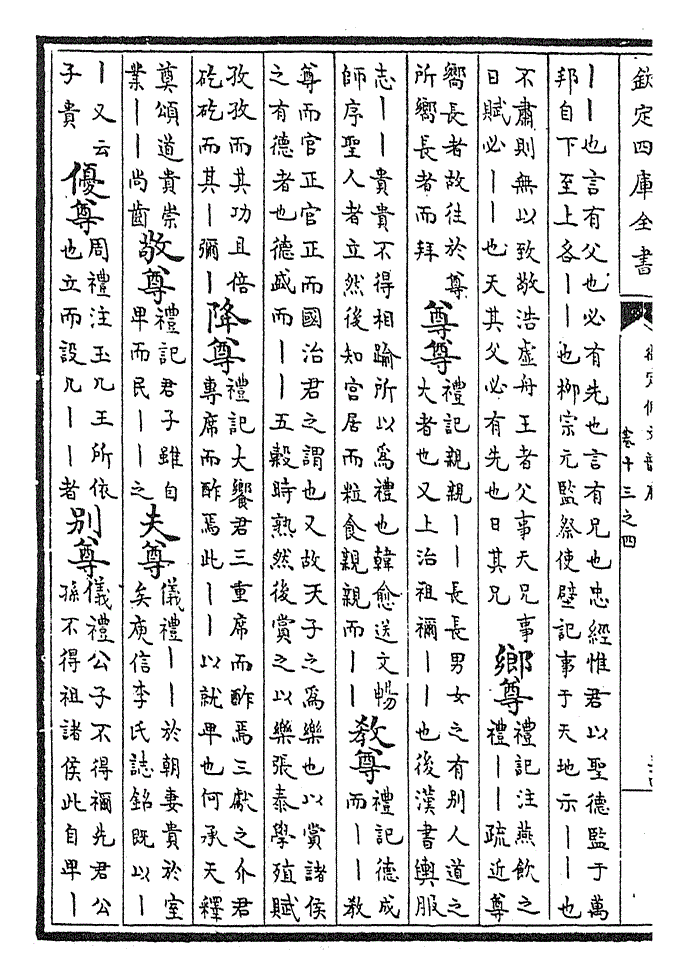 欽定四庫全書
御定佩文韻府
卷十三之四
丨丨也言有父也必有先也言有兄也忠經惟君以聖德監于萬
邦自下至上各丨丨也柳宗元監祭使壁記事于天地示丨丨也
不肅則無以致敬浩虛舟王者父事天兄事
日賦必丨丨也天其父必有先也日其兄
鄉尊
禮記注燕飲之
禮丨丨疏近尊
嚮長者故往於尊
所嚮長者而拜
尊尊
禮記親親丨丨長長男女之有別人道之
大者也又上治祖禰丨丨也後漢書輿服
志丨丨貴貴不得相踰所以為禮也韓愈送文暢
師序聖人者立然後知宮居而粒食親親而丨丨
教尊
禮記德成
而丨丨教
尊而官正官正而國治君之謂也又故天子之為樂也以賞諸侯
之有德者也德盛而丨丨五穀時熟然後賞之以樂張泰學殖賦
孜孜而其功且倍
矻矻而其丨彌丨
降尊
禮記大饗君三重席而酢焉三獻之介君
專席而酢焉此丨丨以就卑也何承天釋
奠頌道貴崇
業丨丨尚齒
敬尊
禮記君子雖自
卑而民丨丨之
夫尊
儀禮丨丨於朝妻貴於室
矣庾信李氏誌銘既以丨
丨又云
子貴
優尊
周禮注玉几王所依
也立而設几丨丨者
別尊
儀禮公子不得禰先君公
孫不得祖諸侯此自卑丨